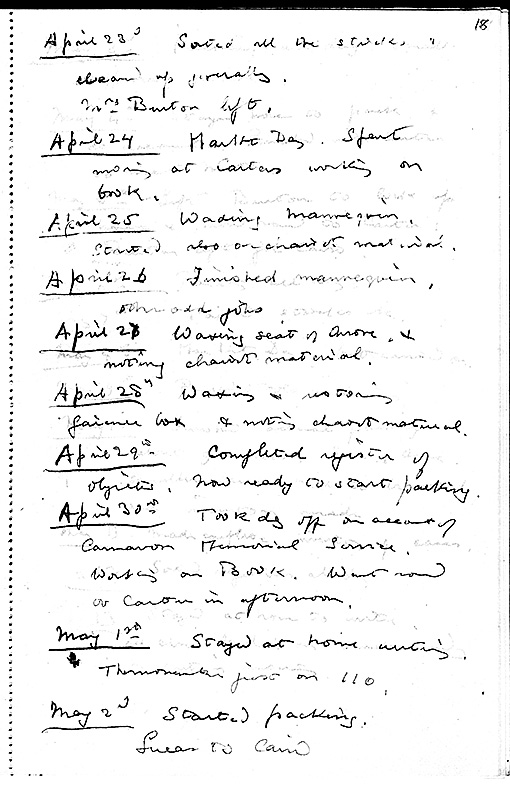 18
April 23d Sorted all the sticks &
cleaned up generally.
Mrs Burton left.
April 24 Market Day. Spent
morning at Carters working on
book.
April 25 Waxing mannequin.
Started also on chariot material.
April 26 Finished mannequin,
other odd jobs
April 27 Waxing seat of throne, &
noting chariot material.
April 28th Waxing & restoring
faience box & noting chariot material.
April 29th Completed register of
objects. Now ready to start packing.
April 30th Took day off on account of
Carnarvon Memorial Service.
Working on Book. Went round
to Carter in afternoon.
May 1st Stayed at home writing.
Thermometer just on 110.
May 2d Started packing.
Lucas to Cairo